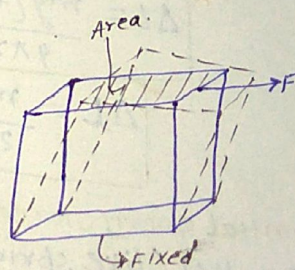 Area.
F
Fixed